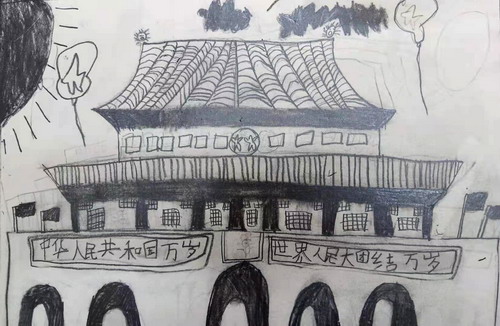 中华人民共和国万岁
世界人民大团结万岁